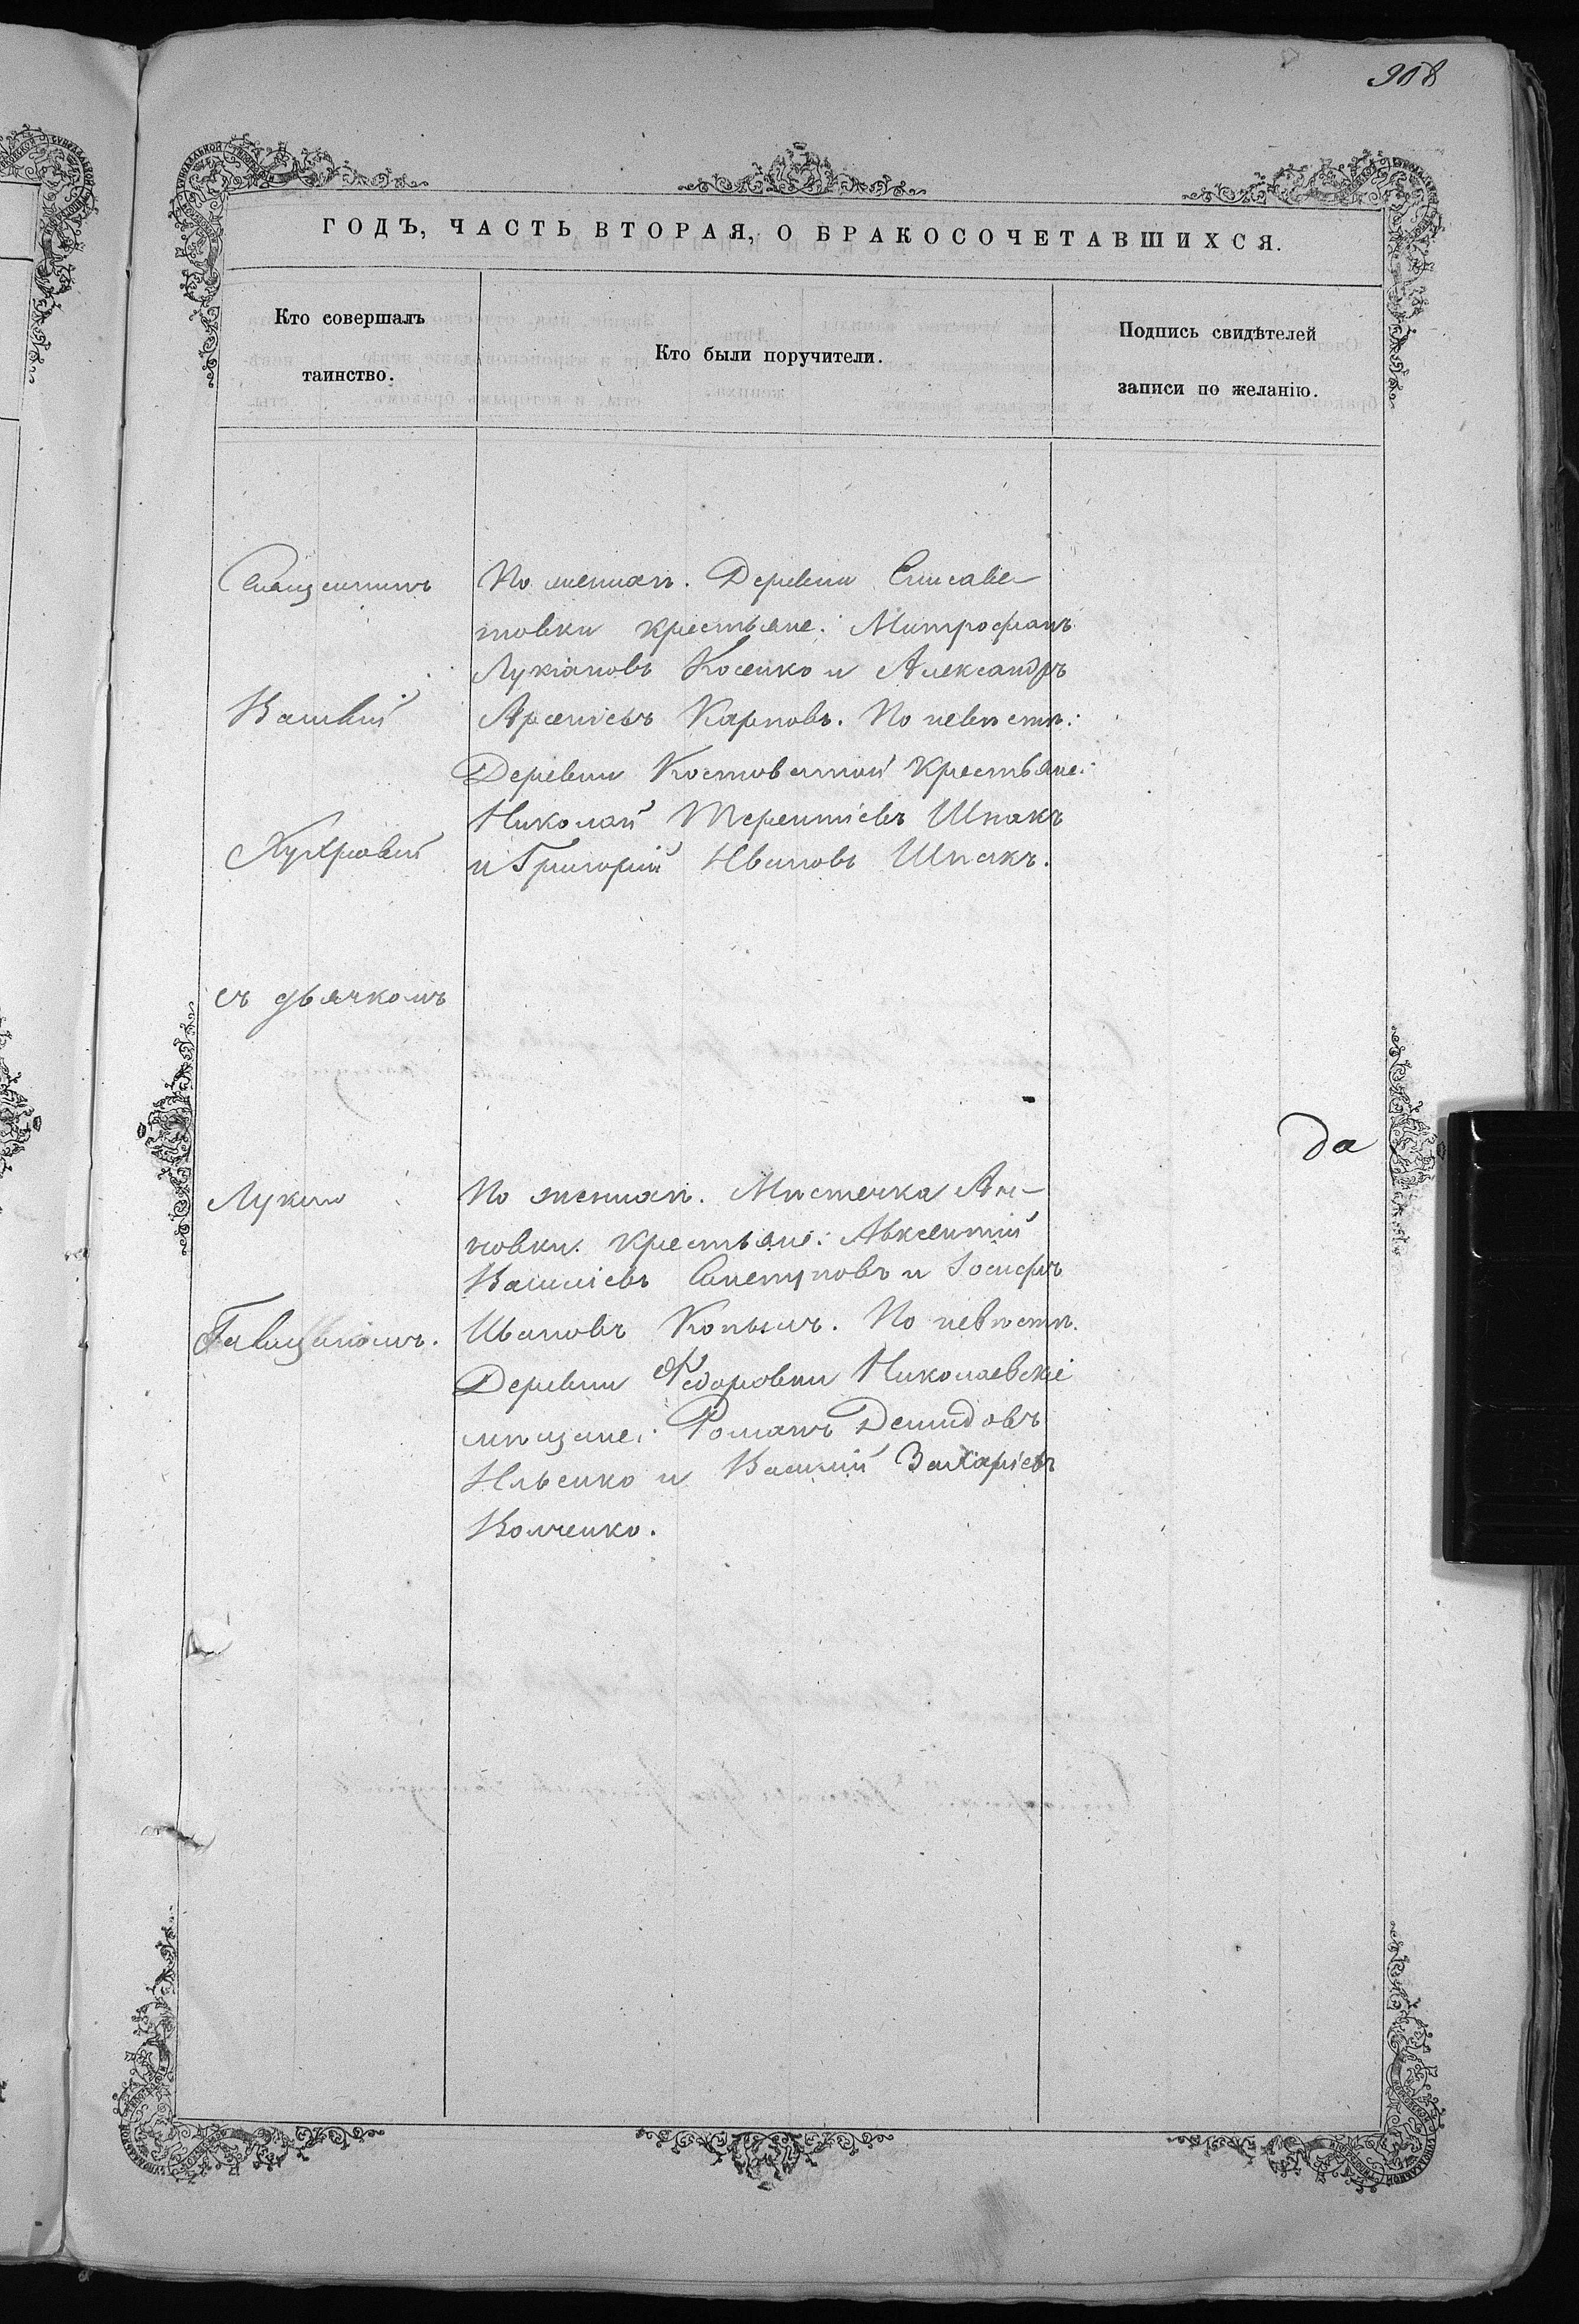 908
ГОДЪ, ЧАСТЬ ВТОРАЯ, О БРАКОСОЧЕТАВШИХСЯ.
Кто совершалъ
таинство.
Кто были поручители.
Подпись свидѣтелей
записи по желанію.
Священникъ
Василій
съ дьячкомъ
Лукою
По женихѣ. Деревни Елисаве-
товки крестьяне: Митрофанъ
Лукіановъ Косенко и Александръ
Арсеніевъ Карповъ. По невѣстѣ:
Деревни Костоватой крестьяне:
Николай Терентіевъ Шпакъ
и Григорій Ивановъ Шпакъ.
По женихѣ. Мѣстечка Ан-
новки крестьяне: Авксентій
Василіевъ и Іосифъ
Ивановъ Копылъ. По невѣстѣ.
Деревни Ѳедоровки Николаевскіе
мѣщане: Романъ Демидовъ
Ильенко и Василій Захаріевъ
Волченко.
да